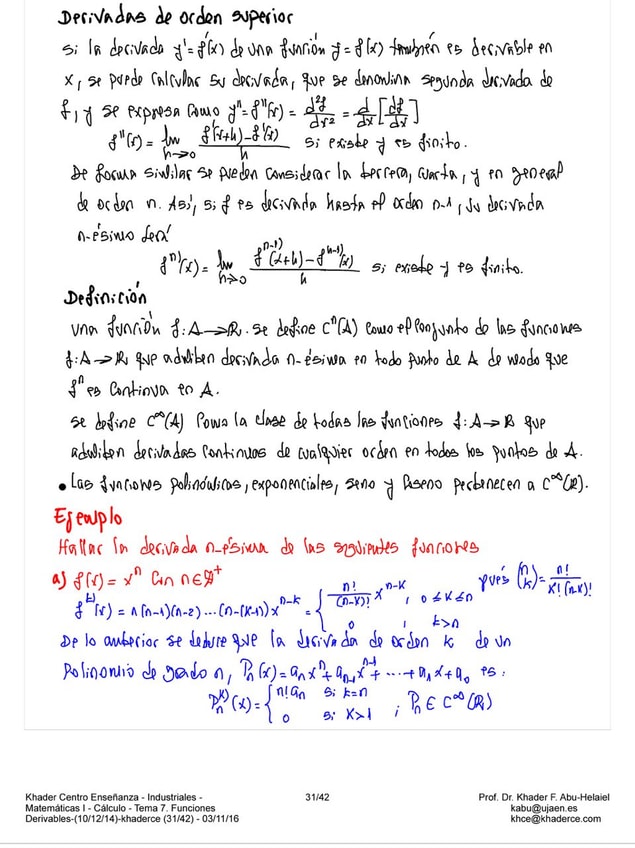 Derivadas de orden superior
Si la derivada y'=f'(x) de una función y=f(x) también es derivable en
x, se puede calcular su derivada, que se denomina segunda derivada de
f, y se expresa como y''=f''(x) = d²f/dx² = d/dx [df/dx]
f''(x) = lim h→0 (f'(x+h)-f'(x))/h si existe y es finito.
De forma similar se pueden considerar la tercera, cuarta, y en general
de orden n. Así, si f es derivada hasta el orden n-1, su derivada
n-ésimo será
fⁿ⁾(x) = lim h→0 (fⁿ⁻¹⁾(x+h) - fⁿ⁻¹⁾(x))/h si existe y es finito.
Definición
Una función f:A→R. se define Cⁿ(A) como el conjunto de las funciones
f:A→R que admiten derivada n-ésima en todo punto de A de modo que
fⁿ es continua en A.
Se define C^∞(A) como la clase de todas las funciones f:A→R que
admiten derivadas continuas de cualquier orden en todos los puntos de A.
• Las funciones polinómicas, exponenciales, seno y coseno pertenecen a C^∞(R).
Ejemplo
Hallar la derivada n-ésima de las siguientes funciones
a) f(x) = xⁿ con n∈Z⁺
fᵏ⁾(x) = n(n-1)(n-2)...(n-(k-1))xⁿ⁻ᵏ = { n!/(n-k)! xⁿ⁻ᵏ, 0≤k≤n ; 0, k>n pués (n k) = n!/(k!(n-k)!)
De lo anterior se deduce que la derivada de orden k de un
Polinomio de grado n, Pn(x) = aₙxⁿ+aₙ₋₁xⁿ⁻¹+...+a₁x+a₀ es:
Pnᵏ⁾(x) = { n!aₙ si k=n ; 0 si k>1 ; Pn ∈ C^∞(R)
Khader Centro Enseñanza - Industriales -
Matemáticas I - Cálculo - Tema 7. Funciones
Derivables-(10/12/14)-khaderce (31/42) - 03/11/16
31/42
Prof. Dr. Khader F. Abu-Helaiel
kabu@ujaen.es
khce@khaderce.com